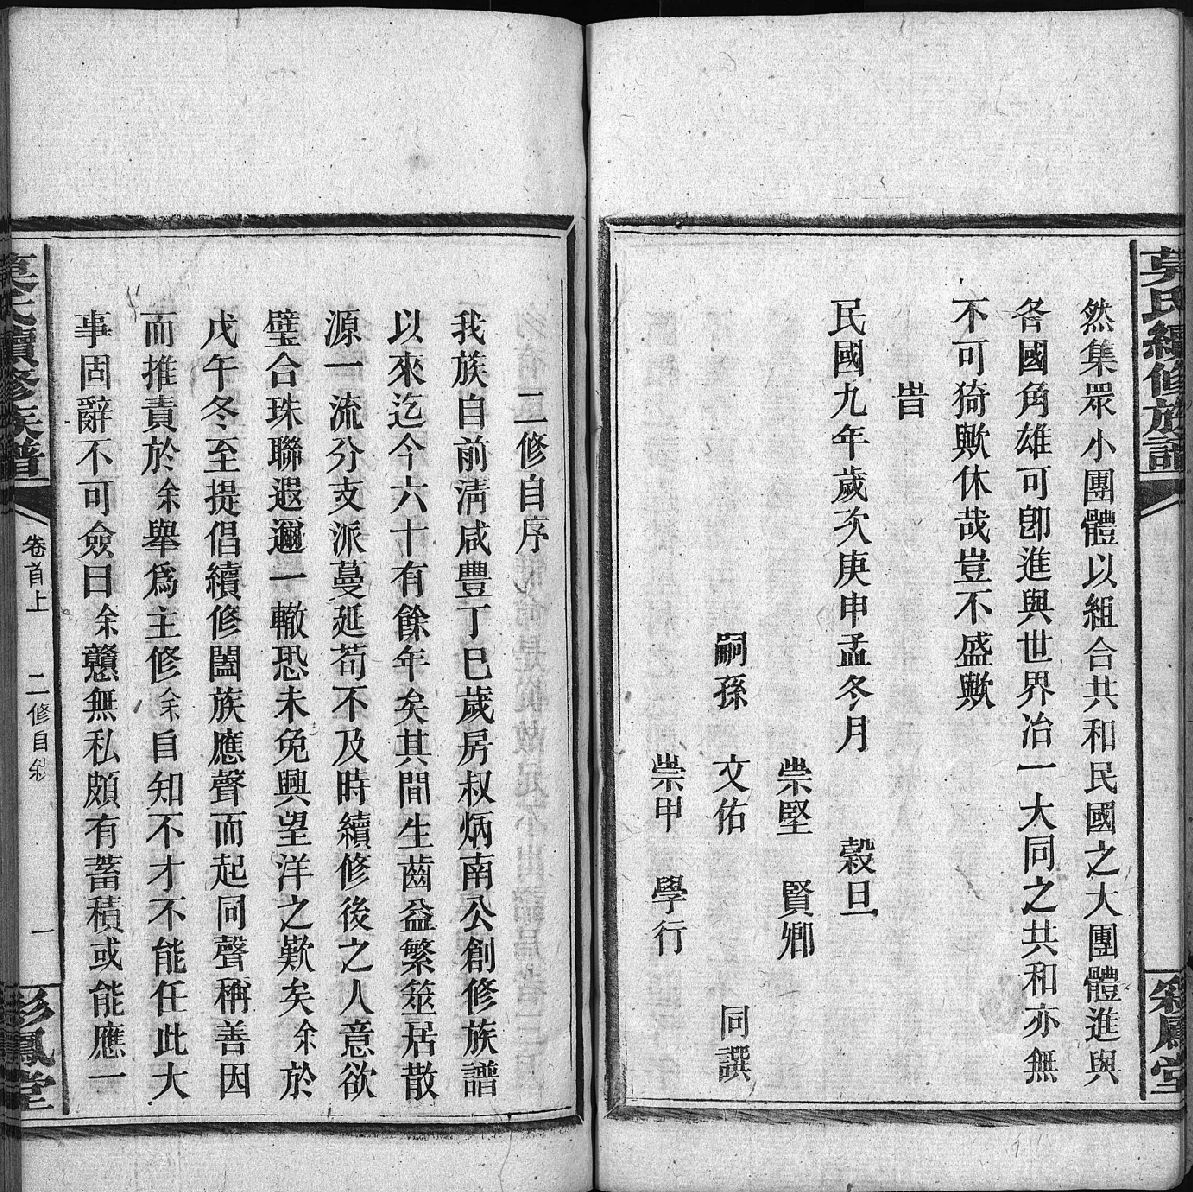 莫氏續修族譜
彩鳳堂
然集眾小團體以組合共和民國之大團體進與
各國角雄可卽進與世界冶一大同之共和亦無
不可猗歟休哉豈不盛歟
旹
民國九年歲次庚申孟冬月 穀旦
崇堅 賢卿
嗣孫 文佑 同譔
崇甲 學行
二修自序
我族自前淸咸豐丁巳歲房叔炳南公創修族譜
以來迄今六十有餘年矣其間生齒益繁筮居散
源一流分支派蔓延苟不及時續修後之人意欲
璧合珠聯遐邇一轍恐未免興望洋之歎矣余於
戊午冬至提倡續修闔族應聲而起同聲稱善因
而推責於余舉爲主修余自知不才不能任此大
事固辭不可僉曰余戇無私頗有蓄積或能應一
莫氏續修族譜
卷首上 二修自敘 一
彩鳳堂